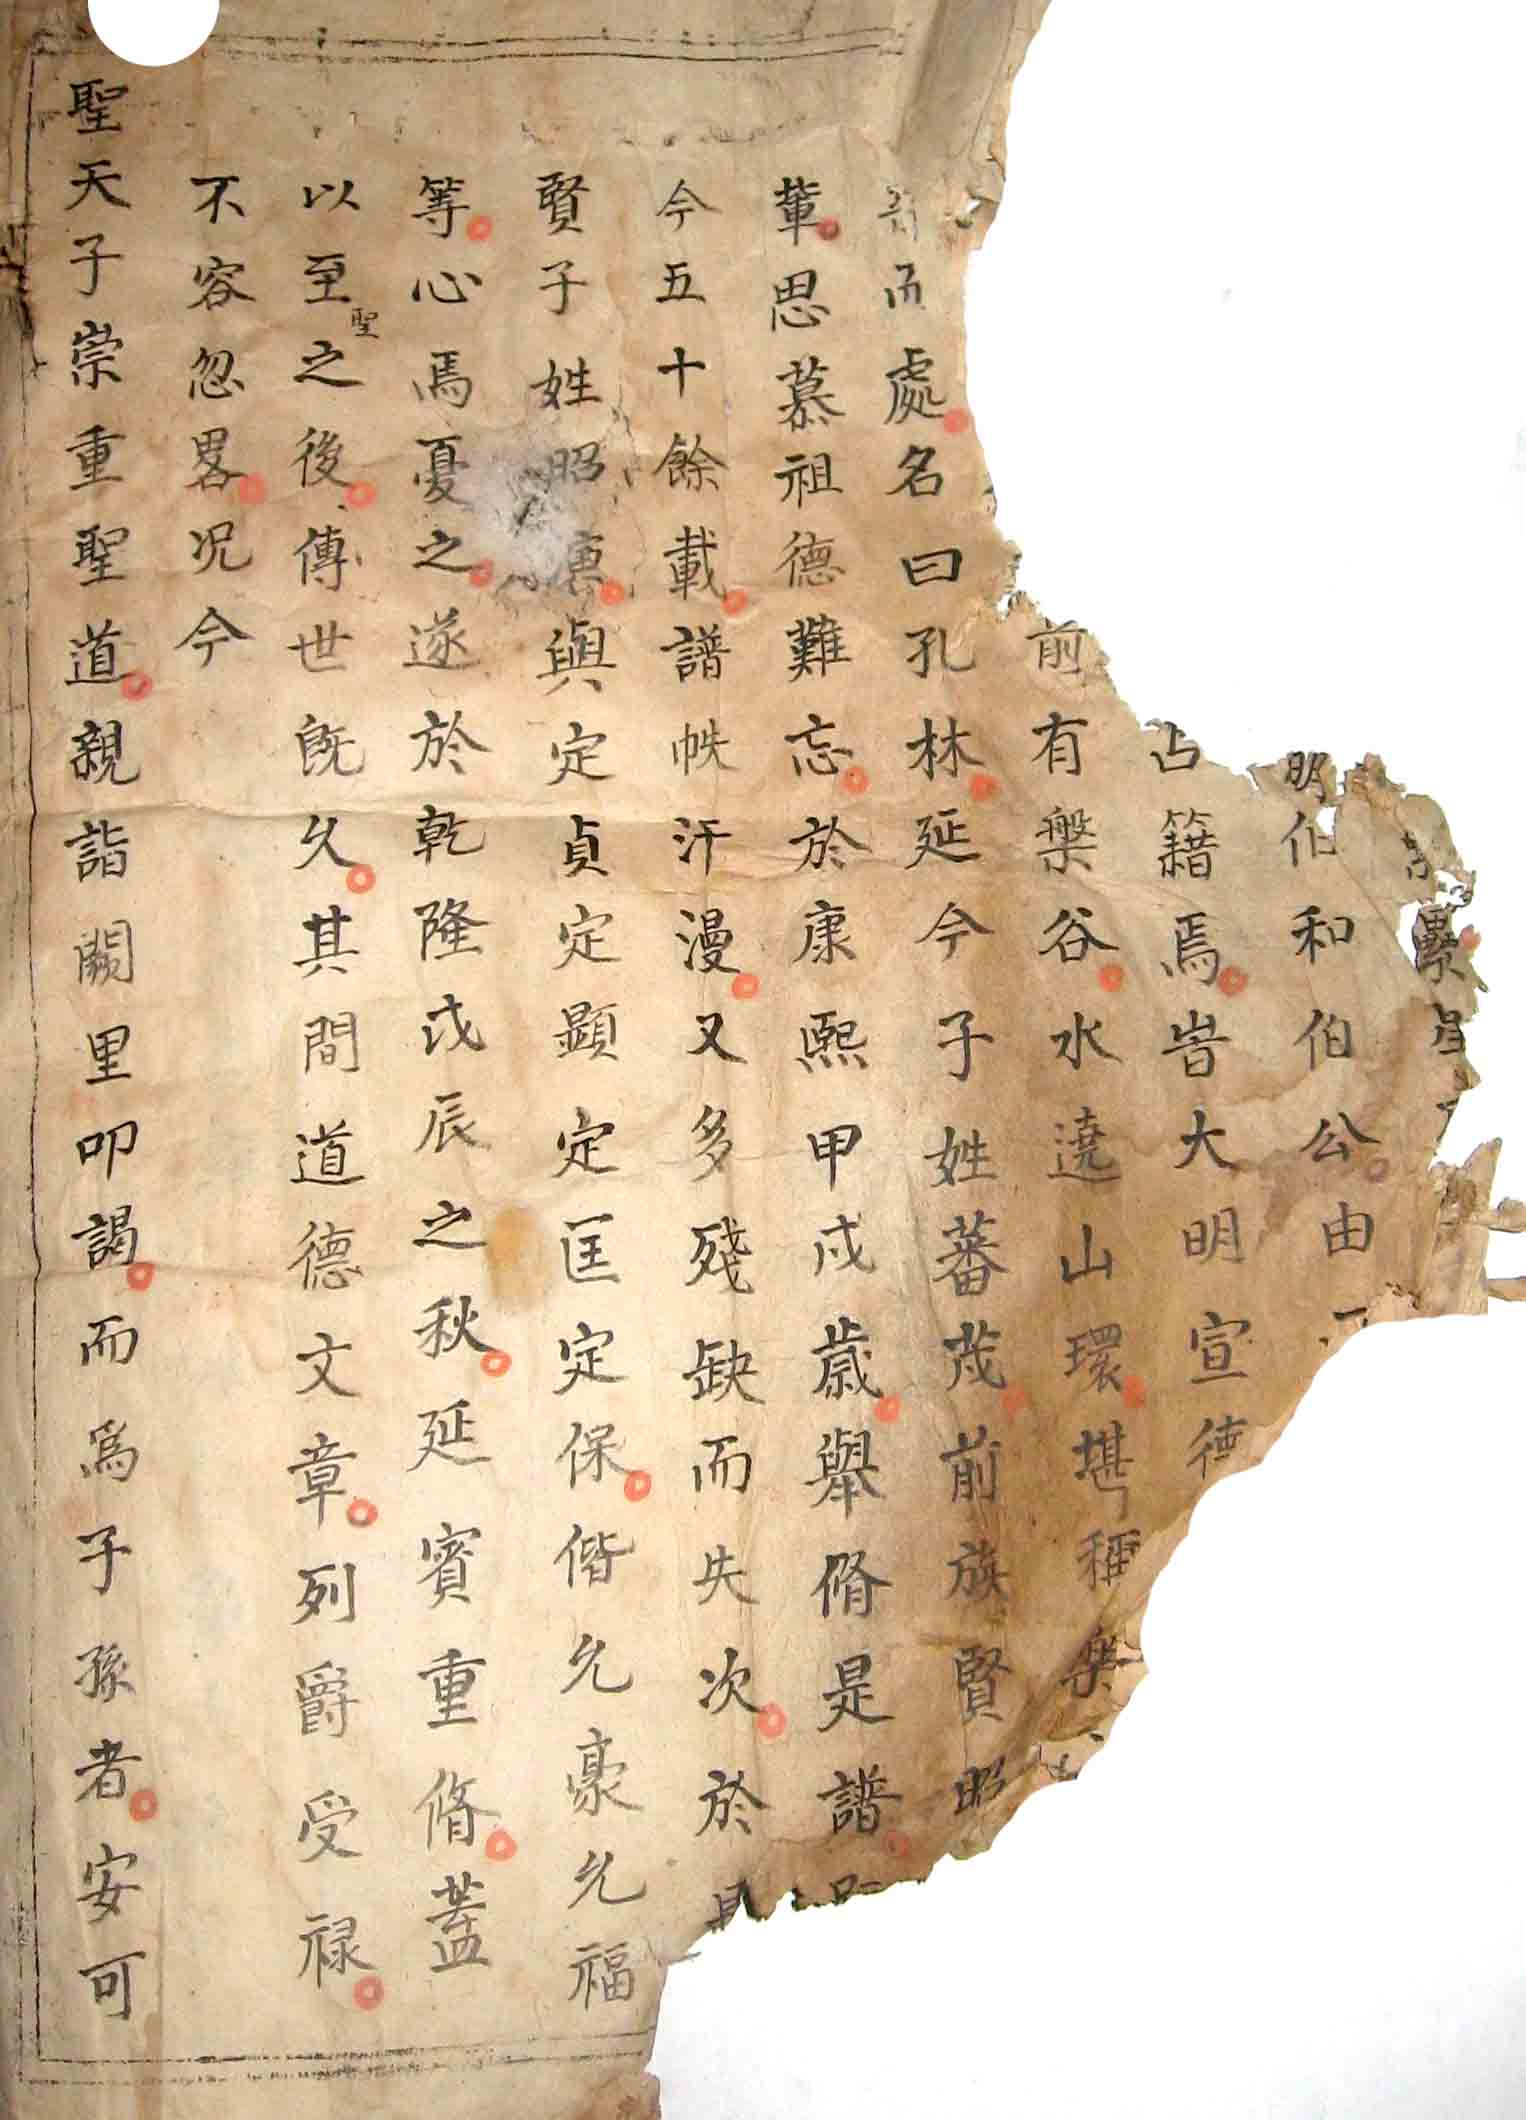 纍
明伯和伯公由
占籍焉旹大明宣德
前有槃谷水遶山環堪稱樂
處名曰孔林延今子姓蕃茂前族賢昭
輩思慕祖德難忘於康熙甲戌歲舉脩是譜
今五十餘載譜帙汗漫又多殘缺而失次於
賢子姓昭與定貞定顕定匡定保偕允豪允福
等心焉憂之遂於乾隆戊辰之秋延賓重脩蓋
以至聖之後傳世既久其間道德文章列爵受禄
不容忽畧况今
聖天子崇重聖道親詣闕里叩謁而爲子孫者安可